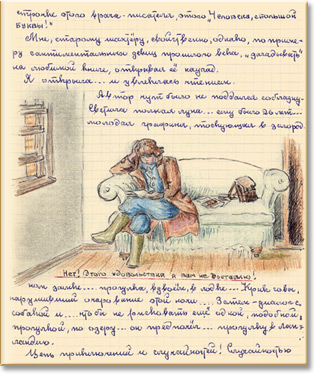 "тройке этого врага-писателя, этого "Человека, с большой
буквы!"
Мне, старому шкафёру, свойственно, однако, по приме-
ру сантиментальных девиц прошлого века, "загадывать"
на любимой книге, открывая её наугад.
Я открыла... и увлеклась чтением.
Автор чуть было не поддался соблазну.
Светила полная луна... ему было 26 лет...
молодая графиня, тоскующая в загород
Нет! Этого удовольствия я вам не доставлю!
ном замке... прогулка, вдвоём, в лодке... Крик совы,
нарушивший очарование этой ночи... Затем - диалог с
собакой и... чтоб не рисковать ещё одной, подобной,
прогулкой, по озеру... он предпочёл... прогулку в Лап-
ландию.
Цепь приключений и случайностей! Случайностью